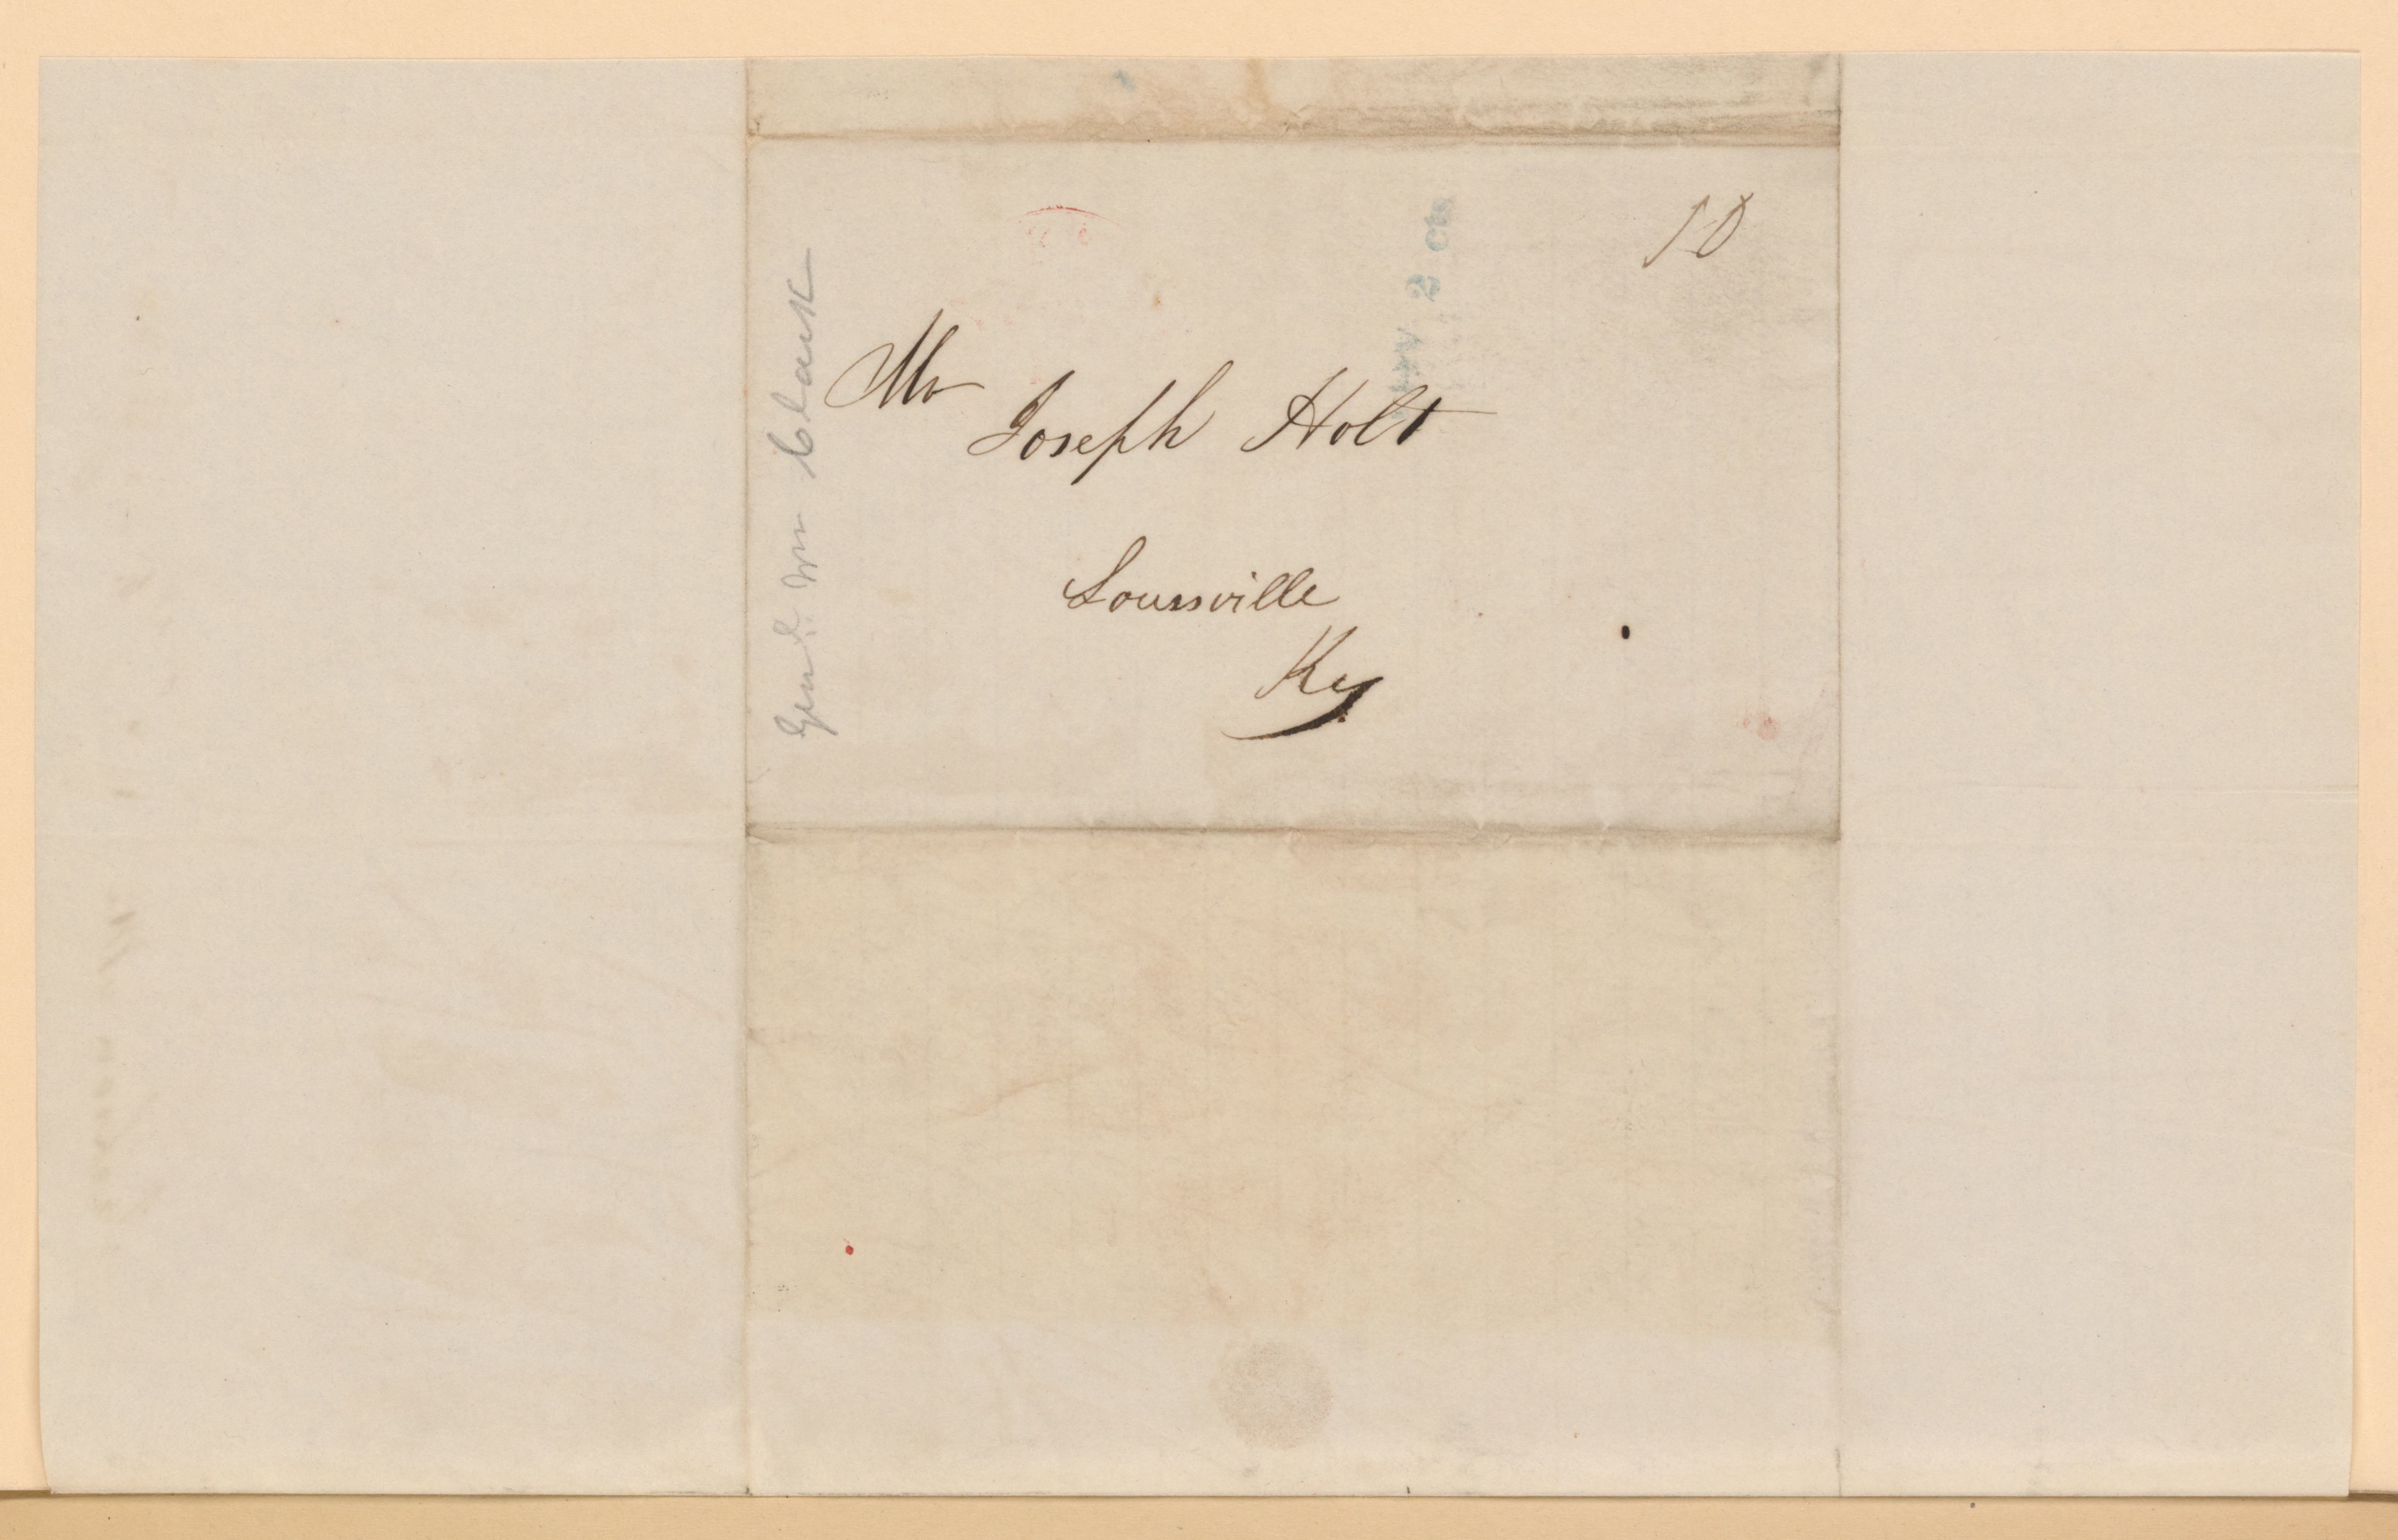 10
Mr
Joseph Holt
Louisville
Ky
Genl. Wm Clark
2 cts